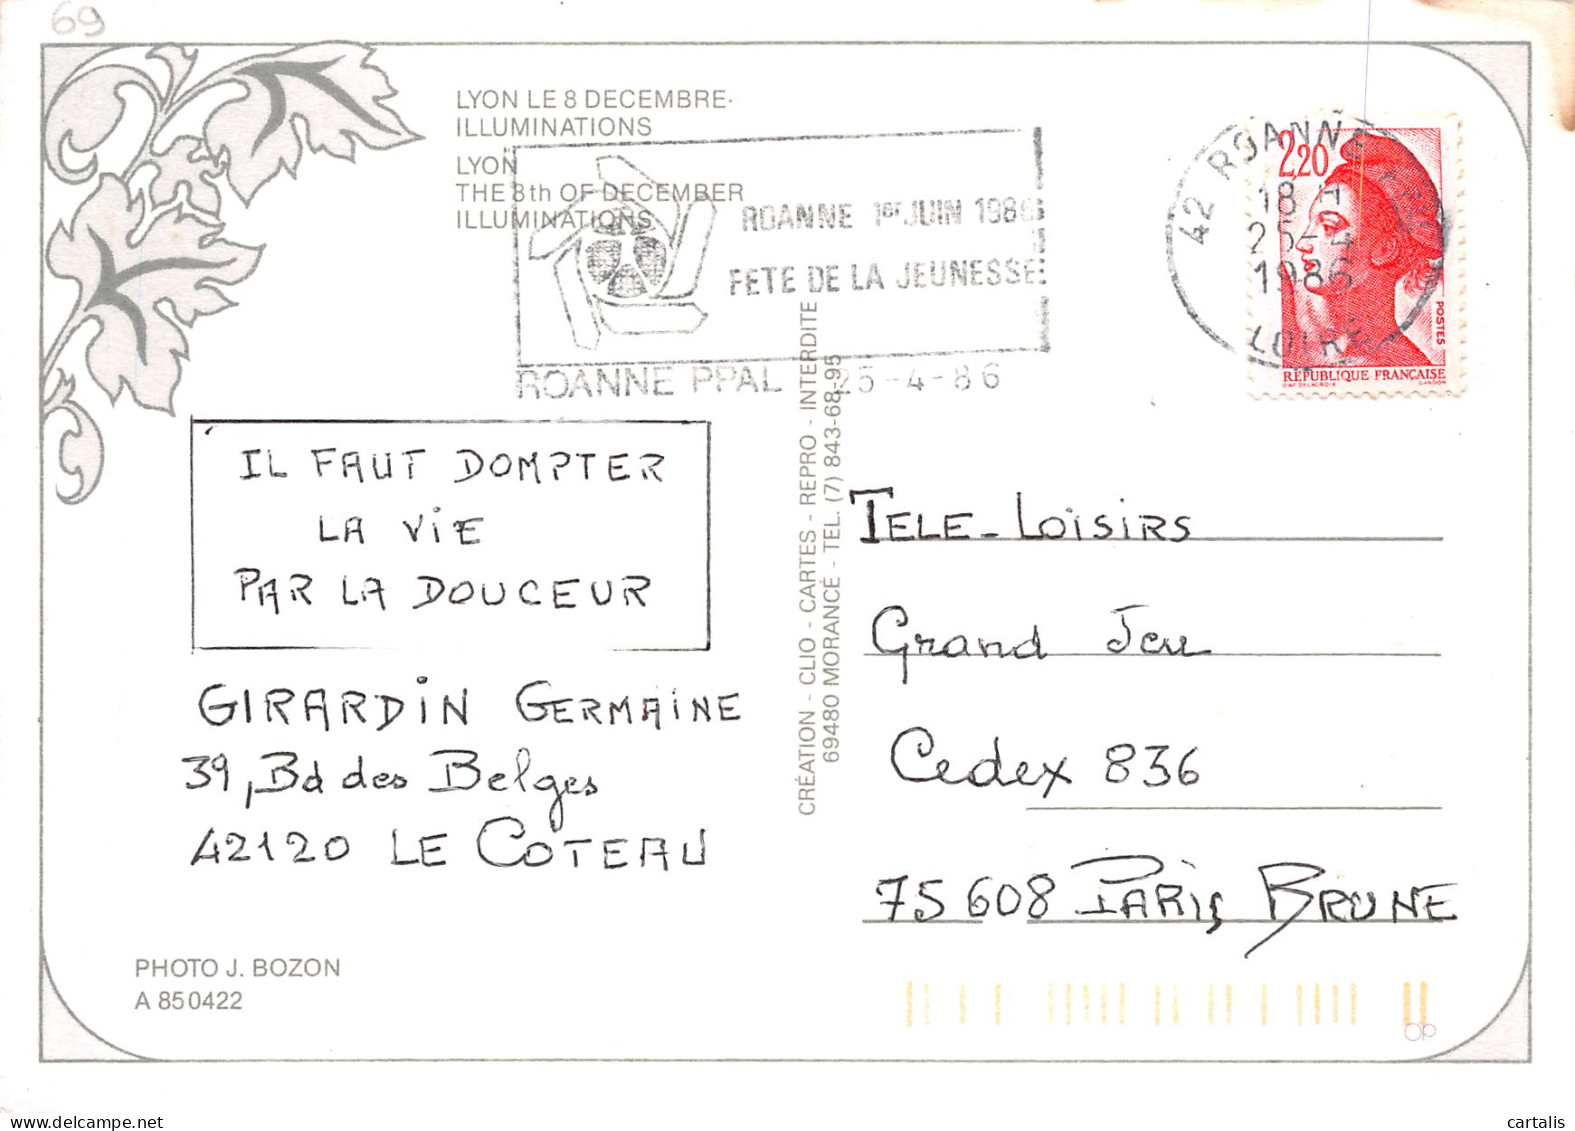 69
LYON LE 8 DECEMBRE.
ILLUMINATIONS
LYON
THE 8th OF DECEMBER
ILLUMINATIONS
ROANNE 1er JUIN 1986
FETE DE LA JEUNESSE
ROANNE PPAL 25-4-86
42 ROANNE PPAL
18 H
25-4
1986
LOIRE
2,20
POSTES
RÉPUBLIQUE FRANÇAISE
D'AP. DELACROIX GANDON
IL FAUT DOMPTER
LA VIE
PAR LA DOUCEUR
GIRARDIN GERMAINE
39, Bd des Belges
42120 LE COTEAU
PHOTO J. BOZON
A 850422
CRÉATION - CLIO - CARTES - REPRO - INTERDITE
69480 MORANCÉ - TEL. (7) 843-68-95
TELE-LOISIRS
Grand Jeu
Cedex 836
75608 PARIS BRUNE
OP
cartalis